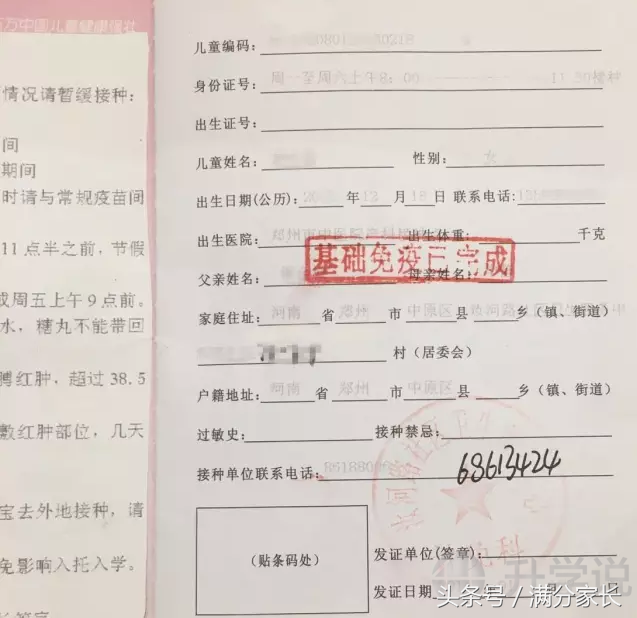 情况请暂缓接种：
间
期间
时请与常规疫苗间
11点半之前，节假
或周五上午9点前。
水，糖丸不能带回
膊红肿，超过38.5
敷红肿部位，几天
宝去外地接种，请
免影响入托入学。
儿童编码：
身份证号： 周一至周六上午8：00 11:30接种
出生证号：
儿童姓名： 性别： 女
出生日期(公历) 年 12 月 18 日 联系电话：
出生医院： 郑州市中医院 出生体重： 千克
基础免疫已完成
父亲姓名： 母亲姓名：
家庭住址： 河南 省 郑州 市 中原区 县 乡（镇、街道）
村（居委会）
户籍地址： 河南 省 郑州 市 中原区 县 乡（镇、街道）
过敏史： 接种禁忌：
接种单位联系电话： 68613424
（贴条码处）
发证单位(签章)：
发证日期 年 月 日
升学说
头条号／满分家长